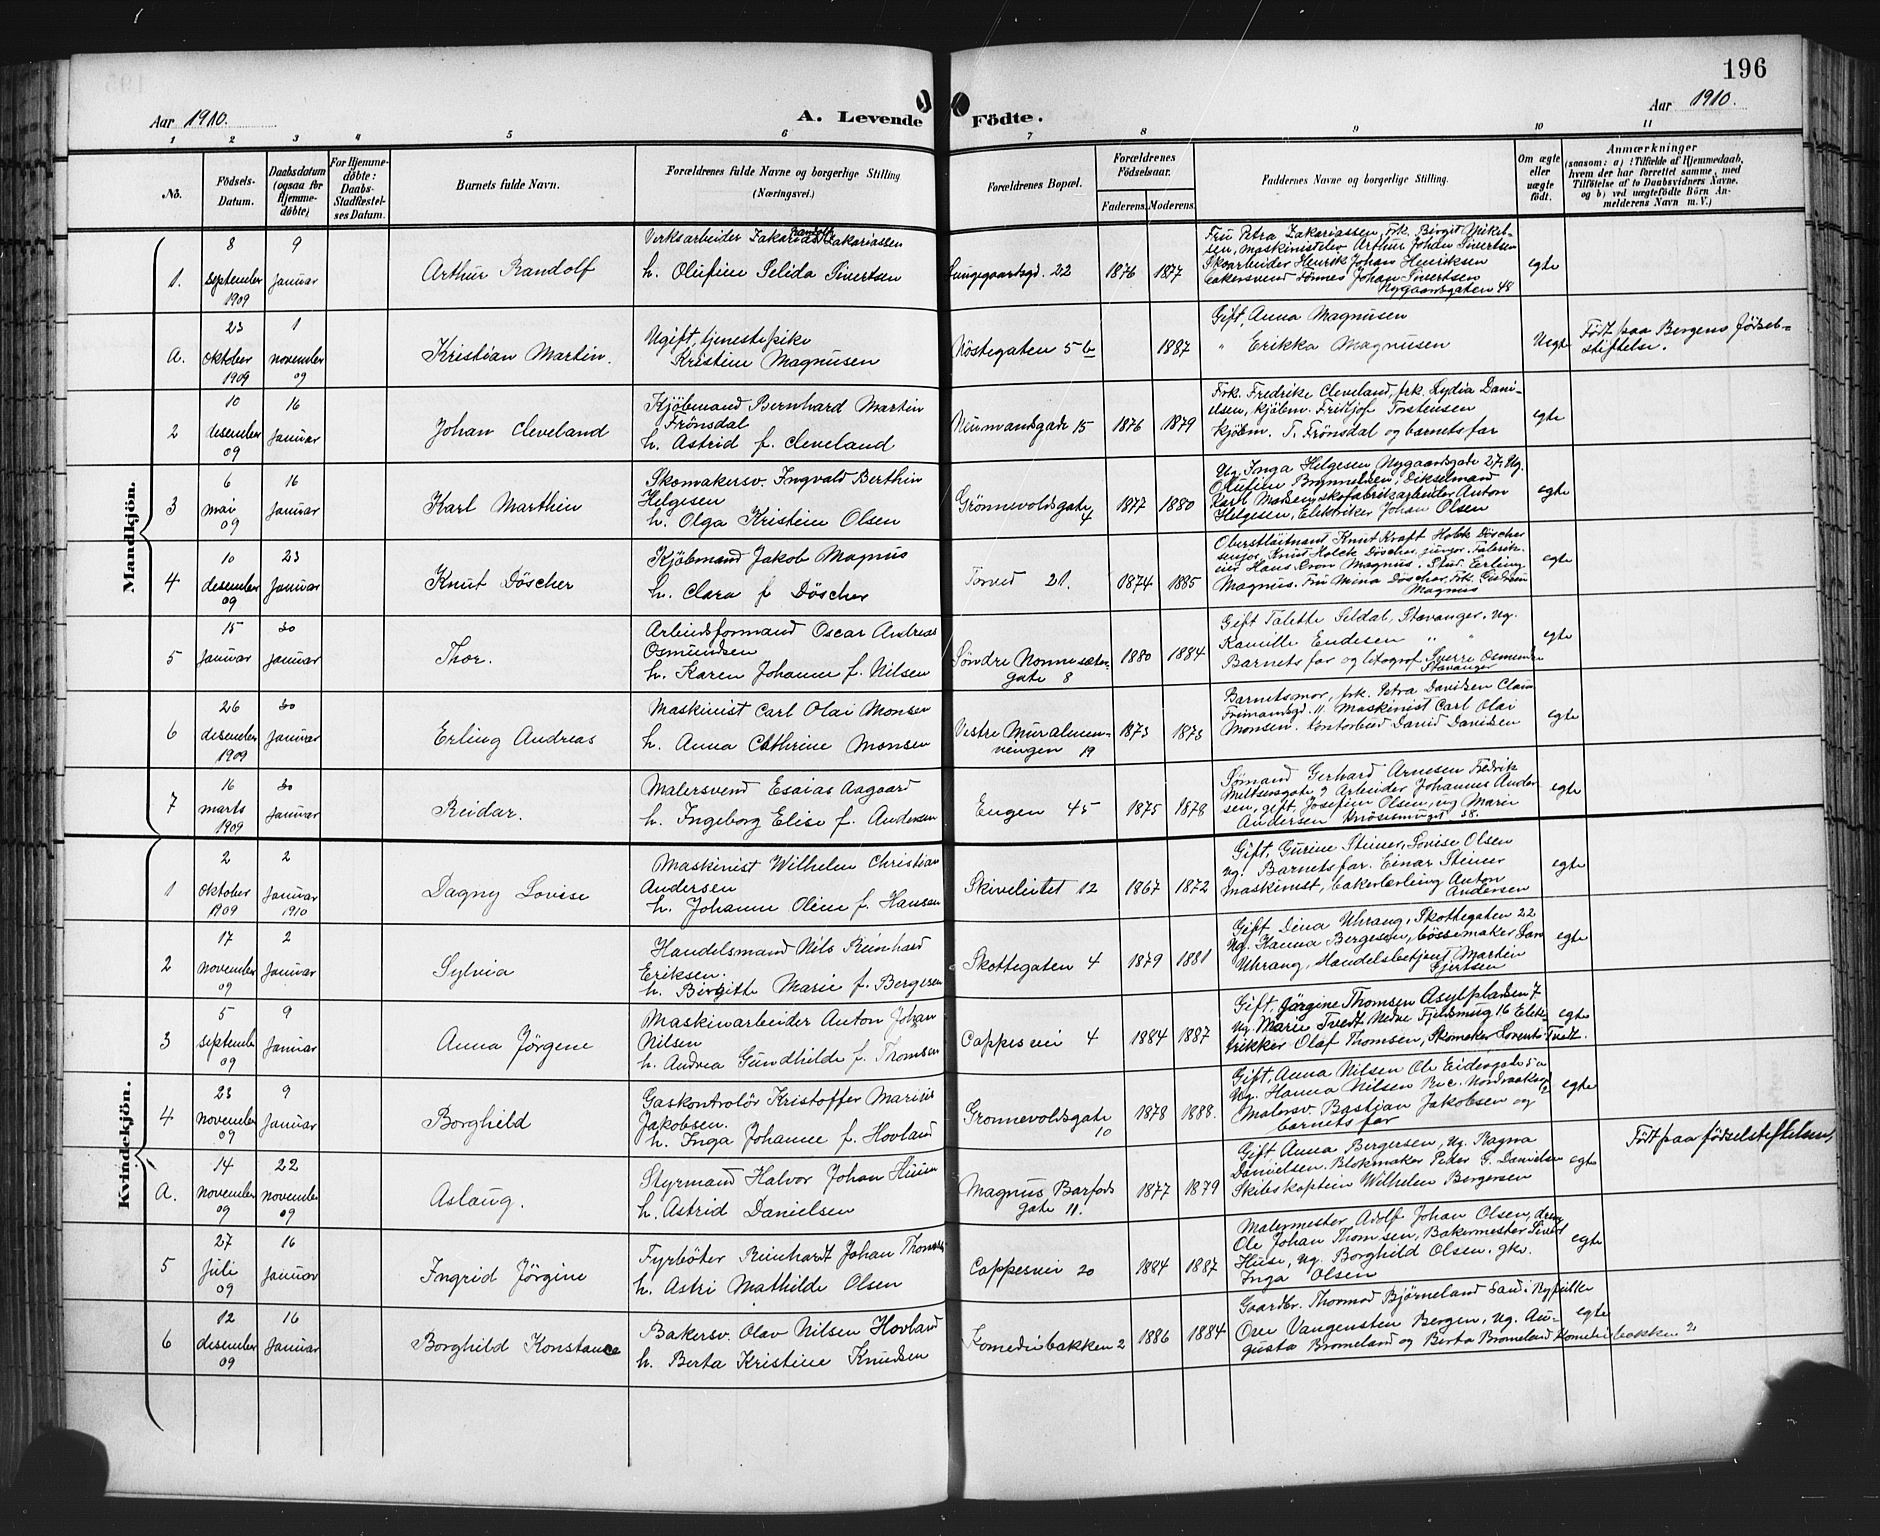 196
Aar 1910.
A. Levende Födte.
Aar 1910.
1 2 3 4 5 6 7 8 9 10 11
No.
Födsels-Datum.
Daabsdatum (ogsaa for Hjemmedöbte)
For Hjemmedöbte: Daabs-Stadfæstelses Datum.
Barnets fulde Navn.
Forældrenes fulde Navne og borgerlige Stilling (Næringsvei.)
Forældrenes Bopæl.
Forældrenes Födselsaar.
Faderens. Moderens.
Faddernes Navne og borgerlige Stilling.
Om ægte eller uægte födt.
Anmærkninger
(saasom: a) i Tilfælde af Hjemmedaab, hvem der har forrettet samme, med Tilföielse af to Daabsvidners Navne, og b) ved uægtefödte Börn Anmelderens Navn m. V.)
Mandkjön.
1. 8 september 1909
9 Januar
Arthur Randolf
Verksarbeider Zakarias Randolf Zakariassen
h. Olufine Selida Sivertsen
Lungegaardsgd. 22
1876 1877
Fru Petra Zakariassen, Frk. Birgit Mikkelsen, Maskinistelev Arthur Johan Sivertsen
Skoarbeider Henrik Johan Henriksen
bakersvend Tönnes Johan Sivertsen
Nygaardsgaten 48
egte
A. 23 oktober 1909
1 november 09
Kristian Martin.
Ugift, tjenestepike
Kristine Magnusen
Nöstegaten 5 b
1887
Gift, Anna Magnusen
" Erikka Magnusen
Uegte
Födt paa Bergens födselsstiftelse.
2 10 desember 09
16 Januar
Johan Cleveland
Kjöbmand Bernhard Martin
Frönsdal
h. Astrid f. Cleveland
Neumandsgade 15
1876 1879
Frk. Fredrike Cleveland, frk. Lydia Danielsen, kjöbm. Fridtjof Torstensen
kjöbm. T. Frönsdal og barnets far
egte
3 6 mai 09
16 Januar
Karl Marthin
Skomakersv. Ingvald Berthin
Helgesen
h. Olga Kristine Olsen
Grönnevoldsgate 4
1877 1880
Ug. Inga Helgesen Nygaardsgade 27, Ug.
Olufine
Karl Madsen, skofabrikarbeider Anton
Helgesen, Elektriker Johan Olsen
egte
4 10 desember 09
23 Januar
Knut Döscher
Kjöbmand Jakob Magnus
h. Clara f Döscher
Torvet 21.
1874 1885
Oberstlöitnant Knut Kraft Holck Döscher
senjor, Knut Holck Döscher, junjor. Fabrikeier Hans Magnus. Stud. Erling
Magnus. Fru Mina Döscher, Frk.
Magnus
egte
5 15 Januar
30 Januar
Thor.
Arbeidsformand Oscar Andreas
Osmundsen
h. Karen Johanne f. Nilsen
Söndre Nonnesætergate 8
1880 1884
Gift Talette Seldal, Stavanger. Ug.
Kamille Endesen " "
Barnets far og litograf Sverre Osmundsen
Stavanger
egte
6 26 desember 1909
30 Januar
Erling Andreas
Maskinist Carl Olai Monsen
h. Anna Cathrine Monsen
Vestre Muralmenningen 19
1873 1873
Barnetsmor, frk. Petra Davidsen Claus
Frimansgd. 11. Maskinist Carl Olai
Monsen. Kontorbud David Davidsen
egte
7 16 marts 1909
30 Januar
Reidar.
Malersvend Esaias Aagaard
h. Ingeborg Elise f. Andersen
Engen 45
1875 1878
Sömand Gerhard Arnesen Fredrik
Meltzersgate 9 Arbeider Johannes Andersen, gift. Josefine Olsen, ug Marie
Andersen Knösesmuget 38.
egte
Kvindekjön.
1 2 oktober 1909
2 Januar 1910
Dagny Lovise
Maskinist Wilhelm Christian
Andersen
h. Johanne Oline f. Hansen
Skivebakken 12
1867 1872
Gift, Gurine Steiner, Lovise Olsen
ug. Barnets far. Einar Steiner
maskinist, bakerlærling Anton
Andersen
egte
2 17 november 09
2 Januar
Sylvia
Handelsmand Nils Reinhard
Eriksen.
h. Birgitte Marie f. Bergesen
Skottegaten 4
1879 1881
Gift Dina Uhrang, Skottegaten 22
Ug. Hanna Bergesen, bössemaker Lars
Uhrang, Handelsbetjent Martin
Gjertsen
egte
3 5 september 09
9 Januar
Anna Jörgene
Maskinarbeider Anton Johan
Nilsen
h. Andrea Gundhilde f. Thomsen
Cappesvei 4
1884 1887
Gift, Jörgine Thomsen Asylpladsen 7
ug. Marie Tvedt Nedre Fjeldsmug 16 Elektrikker Olaf Thomsen, Skomaker Lorents Tvedt.
egte
4 23 november 09
9 Januar
Borghild
Gaskontrolör Kristoffer Marius
Jakobsen.
h. Inga Johanne f. Hovland
Grönnevoldsgate 10
1878 1888.
Gift, Anna Nilsen Ole 5 a
Ug. Hanna Nilsen
Malersv. Bastian Jakobsen og
barnets far
egte
A. 14 november 09
22 november 09
Aslaug.
Styrmand Halvor Johan
h. Astrid Danielsen
Magnus Barfods gate 11.
1877 1879
Gift, Anna Bergersen, Ug. Ragna
Danielsen. Blokmaker Peder G. Danielsen
Skibskaptein Wilhelm Bergersen
egte
Födt paa födselstiftelsen
5 27 Juli 09
16 Januar
Ingrid Jörgine
Fyrböter Reinhardt Johan Thomsen
h. Astri Mathilde Olsen
Cappesvei 20
1884 1887
Malermester Adolf Johan Olsen, dreng
Ole Johan Thomsen, Bakermester Sivert
Huse, ug. Borghild Olsen. gks.
Inga Olsen
egte
6 12 desember 09
16 Januar
Borghild Konstance
Bakersv. Olav Nilsen Hovland
h. Berta Kristine Knudsen
Komediebakken 2
1886 1884
Gaardbr. Thormod Björneland
Vangensten Bergen, Ug. Augusta Bromeland og Berta Bromeland Komediebakken 2
egte